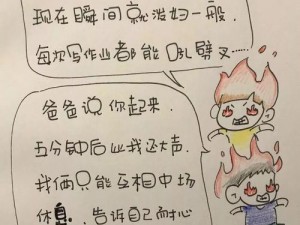 现在瞬间就泼妇一般.
每次写作业都能吼劈叉……
爸爸说你起来.
五分钟后比我还大声.
我俩只能互相中场
休息.告诉自己耐心